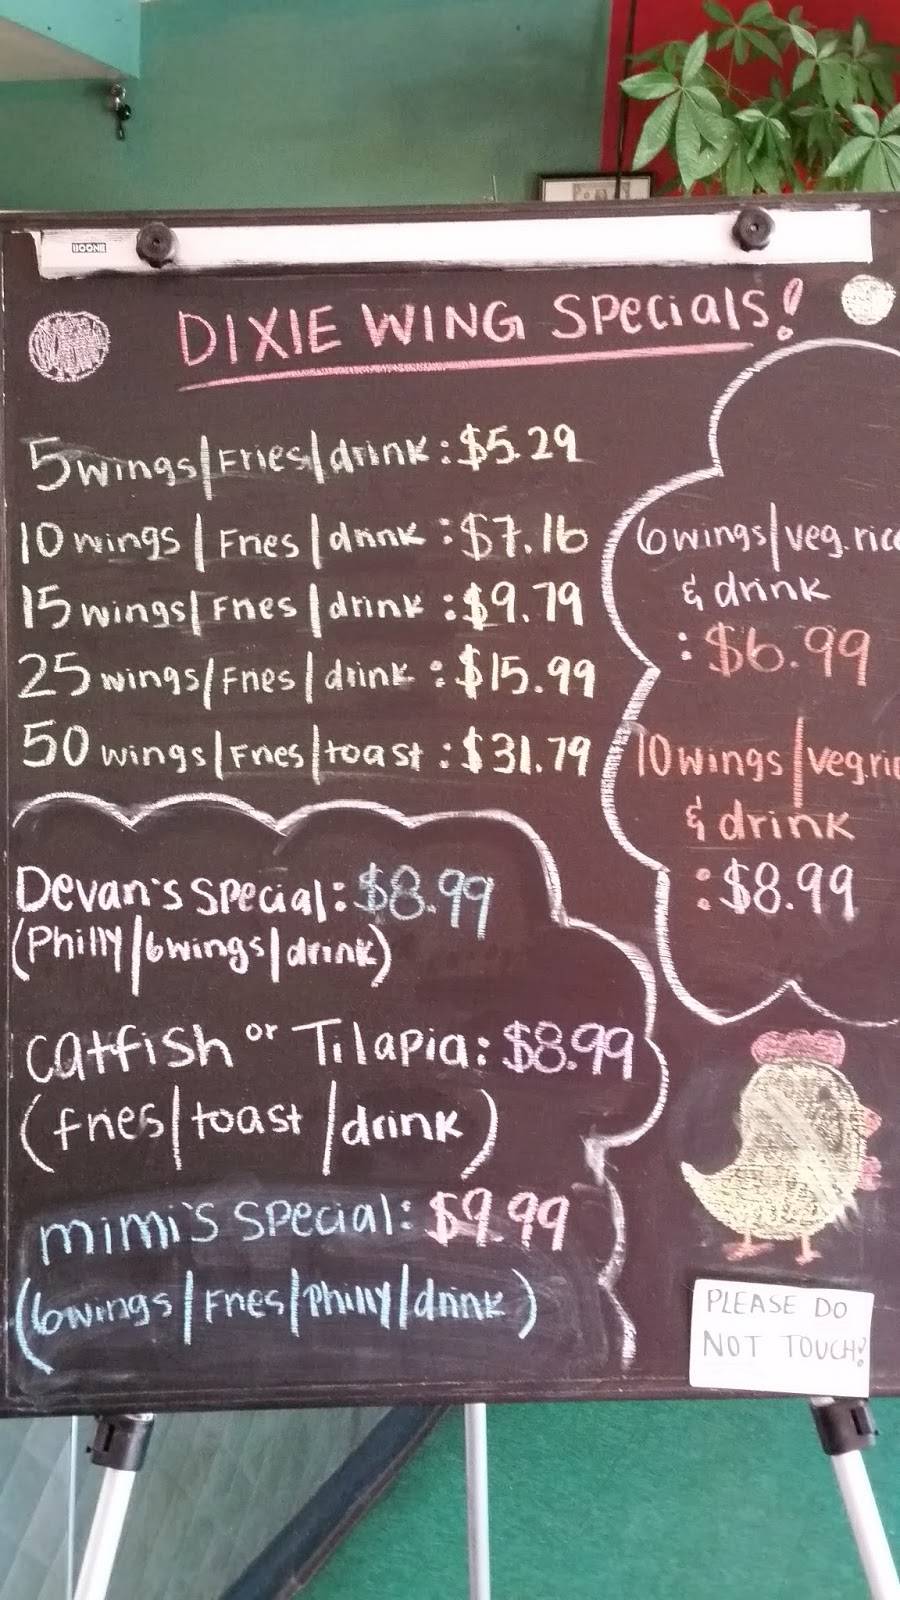 BOONE
DIXIE WING Specials!
5 wings/Fries/drink: $5.29
10 wings | Fries | drink: $7.16
15 wings | Fries | drink: $9.79
25 wings/Fries | drink: $15.99
50 wings | Fries | toast: $31.79
6 wings/veg. rice
& drink
: $6.99
10 wings/veg.ric
& drink
: $8.99
Devan's special: $8.99
(Philly/6wings/drink)
catfish or Tilapia: $8.99
(fries/toast/drink)
mimi's special: $9.99
(6wings/Fries/Philly/drink)
PLEASE DO
NOT TOUCH!